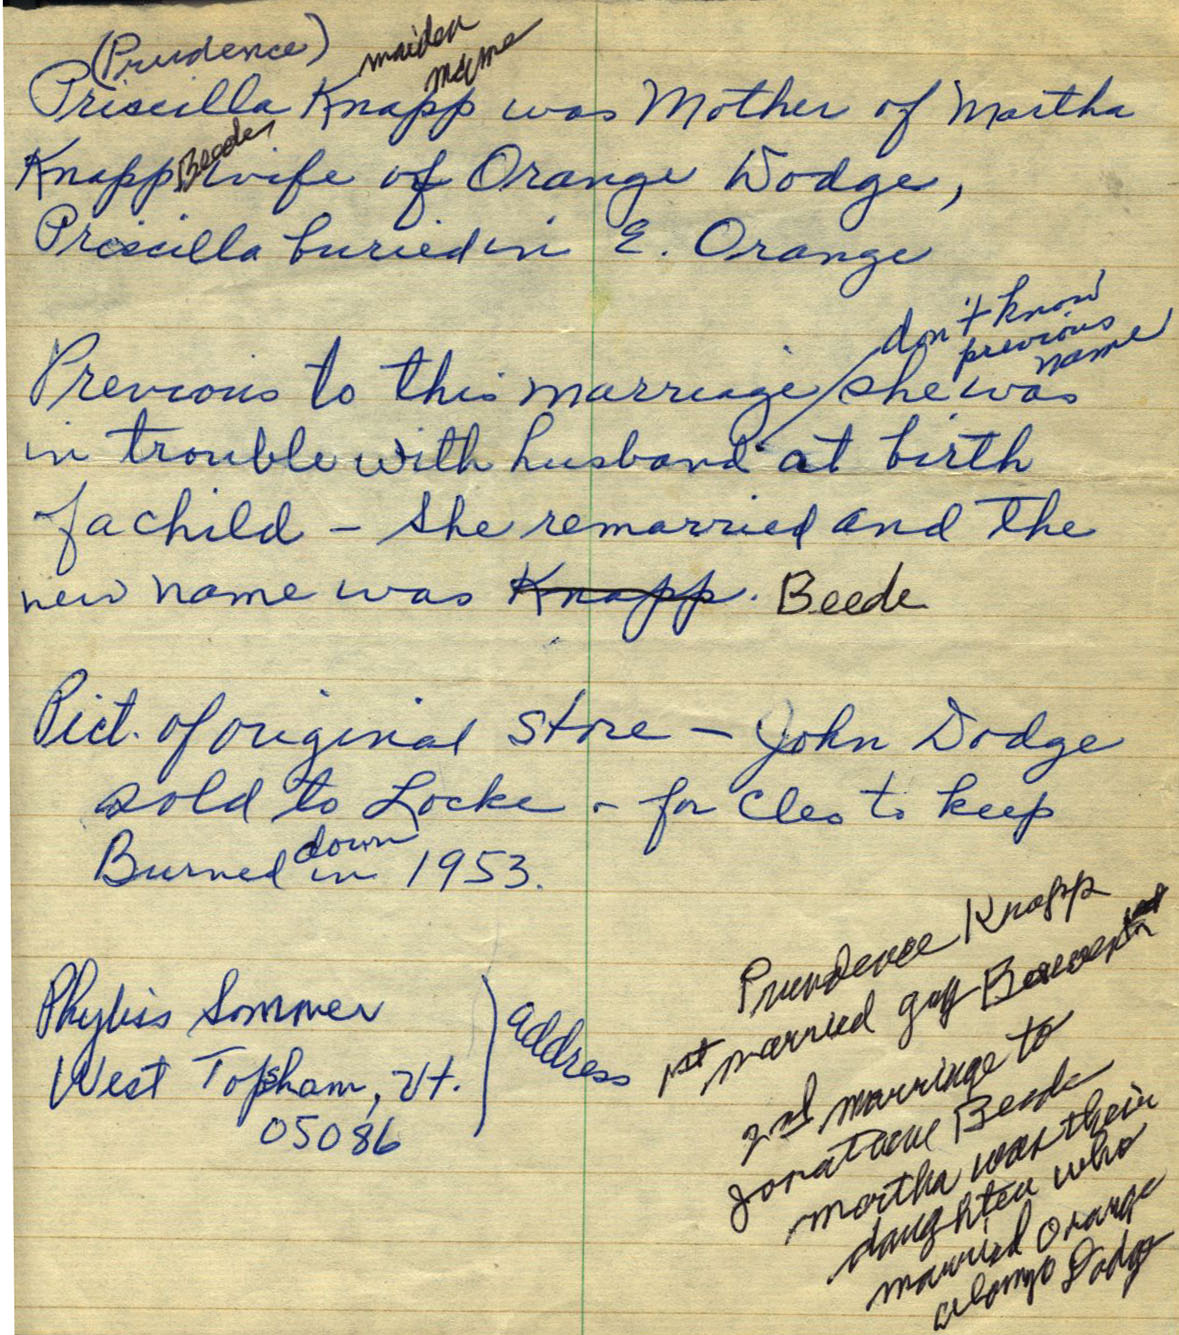 (Prudence) maiden name
Priscilla Knapp was Mother of Martha
Knapp Beede wife of Orange Dodge,
Priscilla buried in E. Orange
don't know
previous
name
Previous to this marriage she was
in trouble with husband at birth
of a child – she remarried and the
new name was Knapp. Beede
Pict. of original store – John Dodge
sold to Locke - for Cleo to keep
Burned down in 1953.
Phyliss Sommer
West Topsham, Vt.
05086
address
Prundence Knapp
1st married guy
2nd marriage to
Beede
martha was their
daughter who
married Orange
Alonzo Dodge